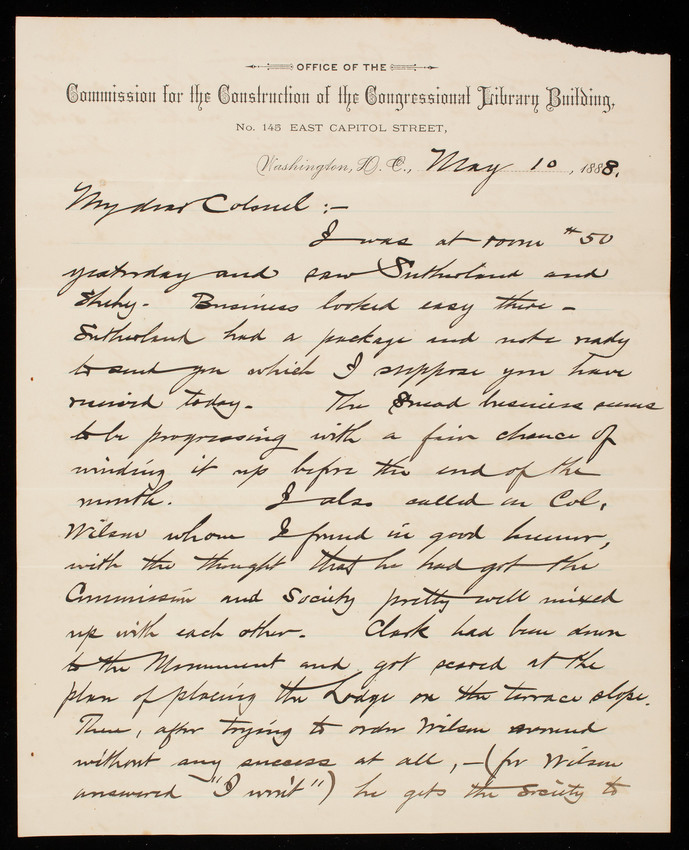 OFFICE OF THE
Commission for the Construction of the Congressional Library Building,
No. 145 EAST CAPITOL STREET,
Washington, D. C., May 10, 1888.
My dear Colonel :—
I was at room # 50
yesterday and saw Sutherland and
Business looked easy there —
Sutherland had a package and note ready
to send you which I suppose you have
received today. The Snead business seems
to be progressing with a fair chance of
winding it up before the end of the
month. I also called on Col.
Wilson whom I found in good humor,
with the thought that he had got the
Commission and Society pretty well mixed
up with each other. Clark had been down
to the Monument and got scared at the
plan of placing the Lodge on the terrace slope.
Then, after trying to order Wilson around
without any success at all, — (for Wilson
answered "I won't") he gets the Society to